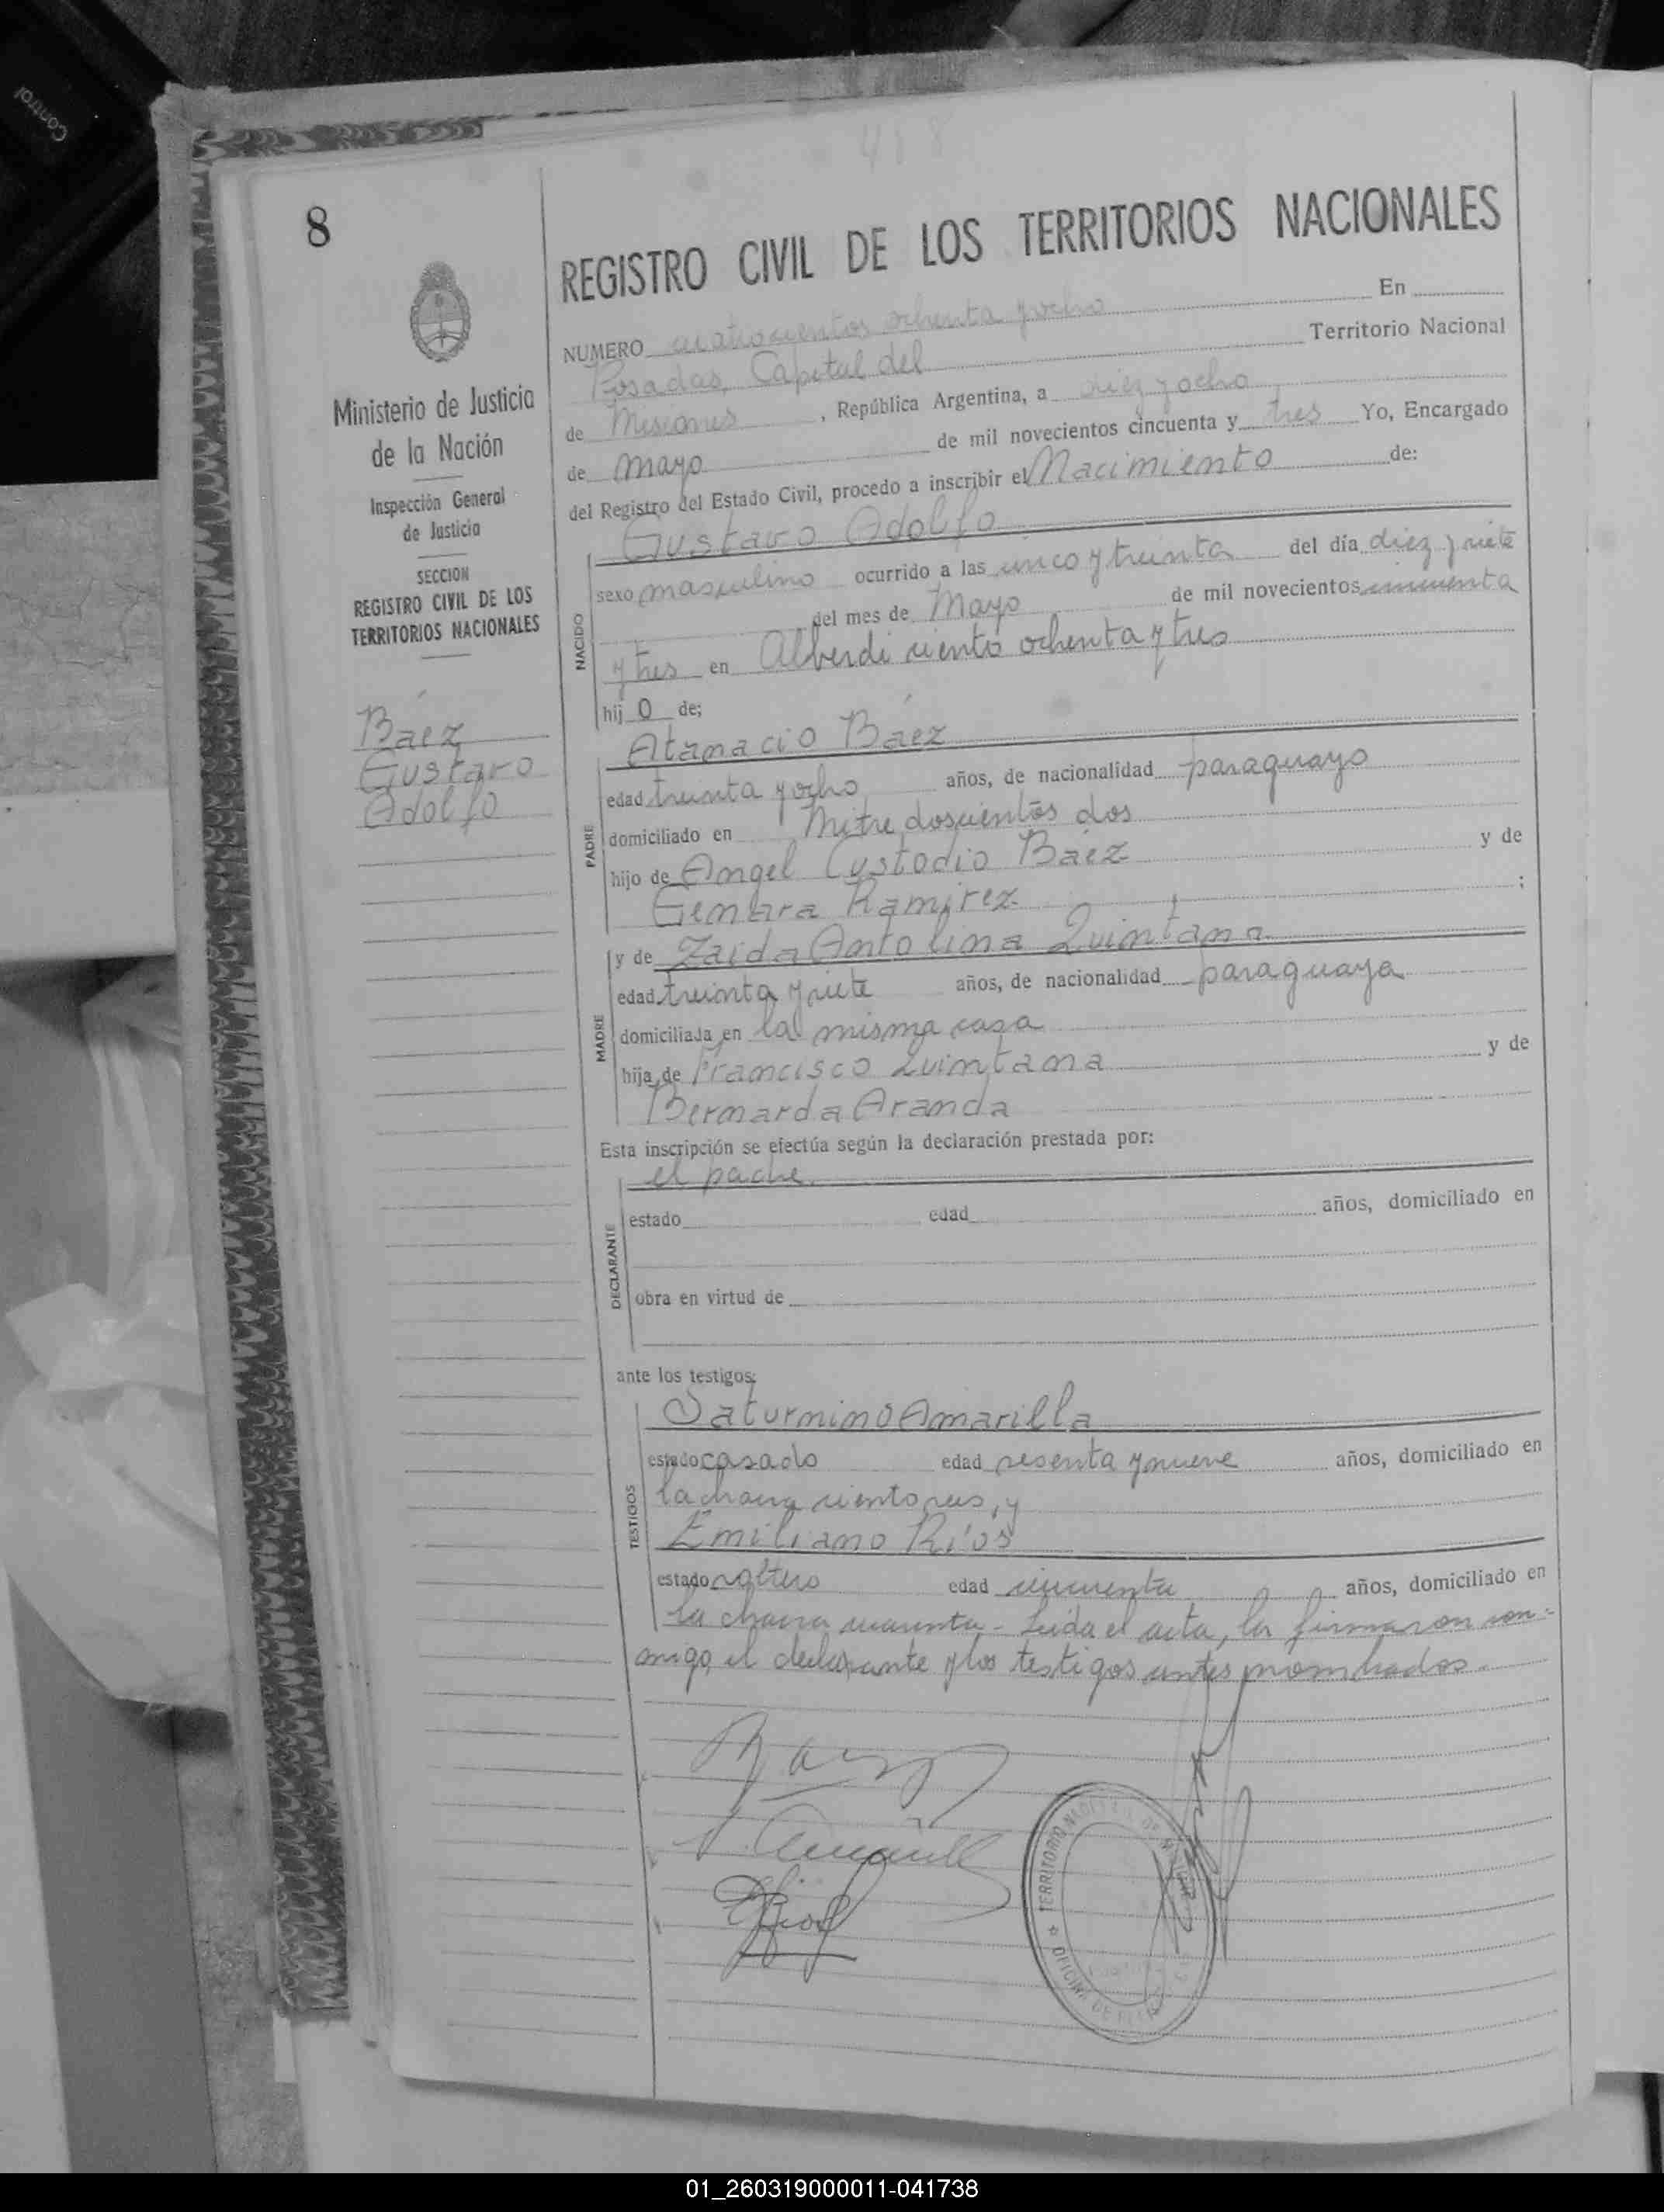 Control
488
8
REGISTRO CIVIL DE LOS TERRITORIOS NACIONALES
NUMERO cuatrocientos ochenta y ocho En
Posadas, Capital del Territorio Nacional
de Misiones, República Argentina, a diez y ocho
de mayo de mil novecientos cincuenta y tres Yo, Encargado
del Registro del Estado Civil, procedo a inscribir el Nacimiento de:
Ministerio de Justicia
de la Nación
Inspección General
de Justicia
SECCION
REGISTRO CIVIL DE LOS
TERRITORIOS NACIONALES
Báez
Gustavo
Adolfo
NACIDO
Gustavo Adolfo
sexo masculino ocurrido a las cinco y treinta del día diez y siete
del mes de Mayo de mil novecientos cincuenta
y tres en Alberdi ciento ochenta y tres
hij o de;
PADRE
Atanacio Báez
edad treinta y ocho años, de nacionalidad paraguayo
domiciliado en Mitre doscientos dos
hijo de Angel Custodio Báez y de
Genara Ramírez ;
MADRE
y de Zaida Antolina Quintana
edad treinta y siete años, de nacionalidad paraguaya
domiciliada en la misma casa
hija de Francisco Quintana y de
Bernarda Aranda
Esta inscripción se efectúa según la declaración prestada por:
DECLARANTE
el padre.
estado edad años, domiciliado en
obra en virtud de
ante los testigos:
TESTIGOS
Saturnino Amarilla
estado casado edad sesenta y nueve años, domiciliado en
la chacra ciento seis, y
Emiliano Ríos
estado soltero edad cincuenta años, domiciliado en
la chacra cuarenta - Leida el acta, la firmaron con-
migo, el declarante y los testigos antes nombrados.
Baez
S. Amarilla
E Rios
TERRITORIO NACIONAL DE MISIONES
OFICINA DE
01_260319000011-041738